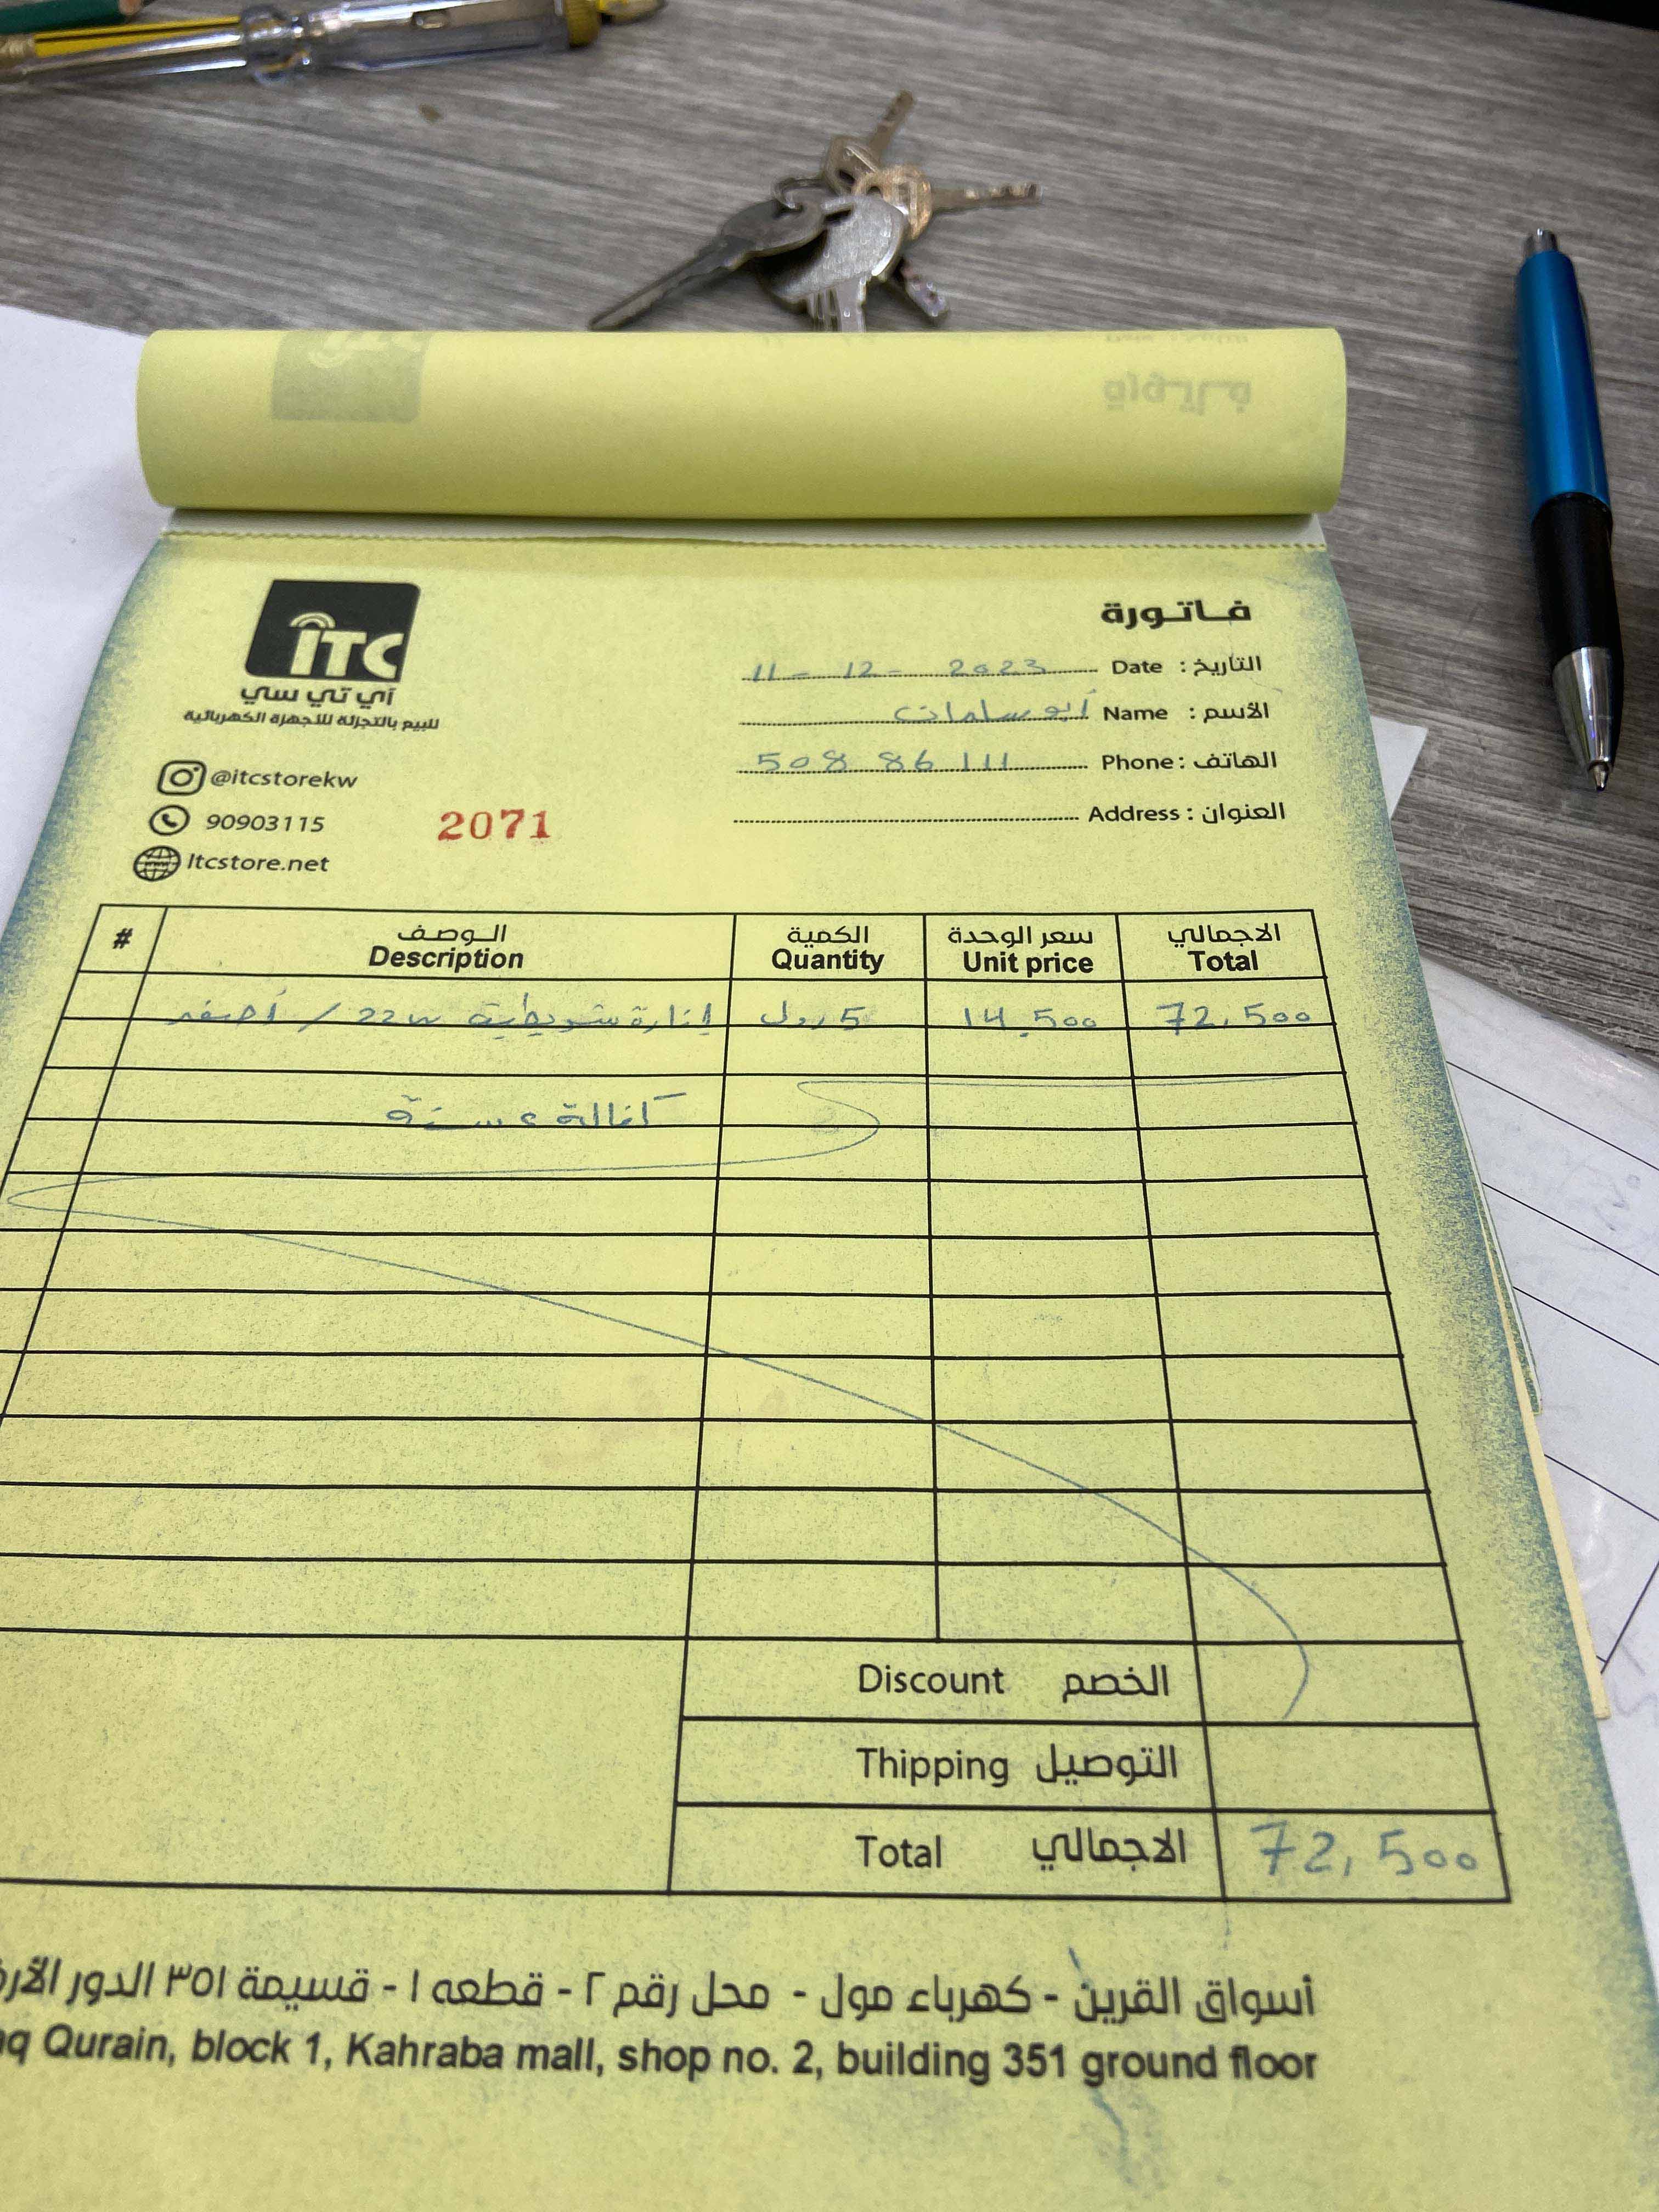 ITC
آي تي سي
للبيع بالتجزئة للأجهزة الكهربائية
@itcstorekw
90903115
Itcstore.net
2071
فـاتـورة
التاريخ : Date 11 - 12 - 2023
الأسم : Name أبو سلمان
الهاتف : Phone 508 86 111
العنوان : Address
# الـوصـف الكمية سعر الوحدة الاجمالي
Description Quantity Unit price Total
إنارة شريطية 22w / أصفر 5 رول 14.500 72,500
كفالة ٢ سنة
Discount الخصم
Thipping التوصيل
Total الاجمالي 72,500
أسواق القرين - كهرباء مول - محل رقم ٢ - قطعه ١ - قسيمة ٣٥١ الدور
Qurain, block 1, Kahraba mall, shop no. 2, building 351 ground floor